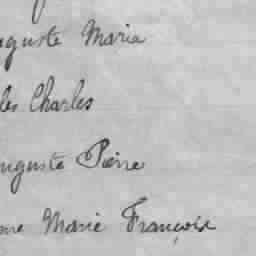 uguste Maria
les Charles
uguste Pierre
me Marie François